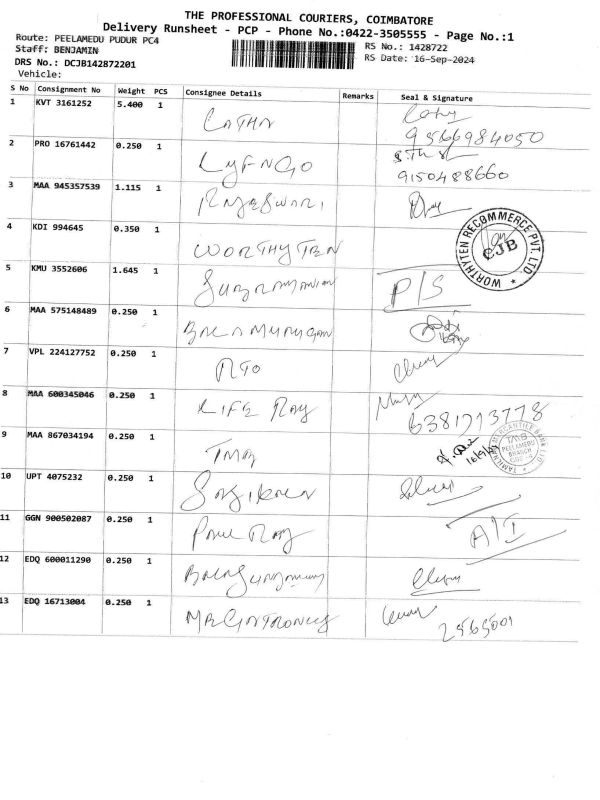 THE PROFESSIONAL COURIERS, COIMBATORE
Delivery Runsheet - PCP - Phone No.:0422-3505555 - Page No.:1
Route: PEELAMEDU PUDUR PC4
Staff: BENJAMIN
RS No.: 1428722
RS Date: 16-Sep-2024
DRS No.: DCJB142872201
Vehicle:
S No Consignment No Weight PCS Consignee Details Remarks Seal & Signature
1 KVT 3161252 5.400 1 LATHA
9566984050
2 PRO 16761442 0.250 1 LYFNGO
9150488660
3 MAA 945357539 1.115 1 RAJESWARI
4 KDI 994645 0.350 1 WORTHYTEN
WORTHYTEN RECOMMERCE PVT. LTD.
CJB
5 KMU 3552606 1.645 1 Subramanian P/S
6 MAA 575148489 0.250 1 BALAMURUGAN
7 VPL 224127752 0.250 1 RTO
8 MAA 600345046 0.250 1 LIFE RAY
6381713778
9 MAA 867034194 0.250 1 TMB
TAMILNAD MERCANTILE BANK LTD
TMB
PEELAMEDU
BRANCH
10 UPT 4075232 0.250 1
11 GGN 900502087 0.250 1 PAUL RAJ A/I
12 EDQ 600011290 0.250 1
13 EDQ 16713004 0.250 1
2565001